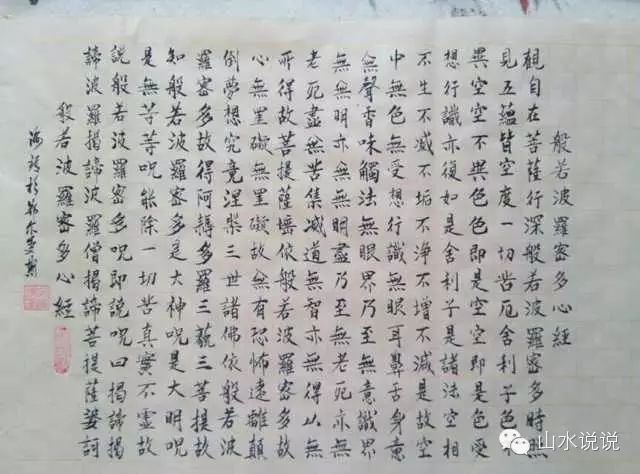 般若波羅密多心經
觀自在菩薩行深般若波羅密多時照
見五蘊皆空度一切苦厄舍利子色不
異空空不異色色即是空空即是色受
想行識亦復如是舍利子是諸法空相
不生不滅不垢不淨不增不減是故空
中無色無受想行識無眼耳鼻舌身意
無聲香味觸法無眼界乃至無意識界
無無明亦無無明盡乃至無老死亦無
老死盡無苦集滅道無智亦無得以無
所得故菩提薩埵依般若波羅密多故
心無罣礙無罣礙故無有恐怖遠離顛
倒夢想究竟涅槃三世諸佛依般若波
羅密多故得阿耨多羅三藐三菩提故
知般若波羅密多是大神呪是大明呪
是無等等呪能除一切苦真實不虛故
說般若波羅密多呪即說呪曰揭諦揭
諦波羅揭諦波羅僧揭諦菩提薩婆訶
般若波羅密多心經
山水说说